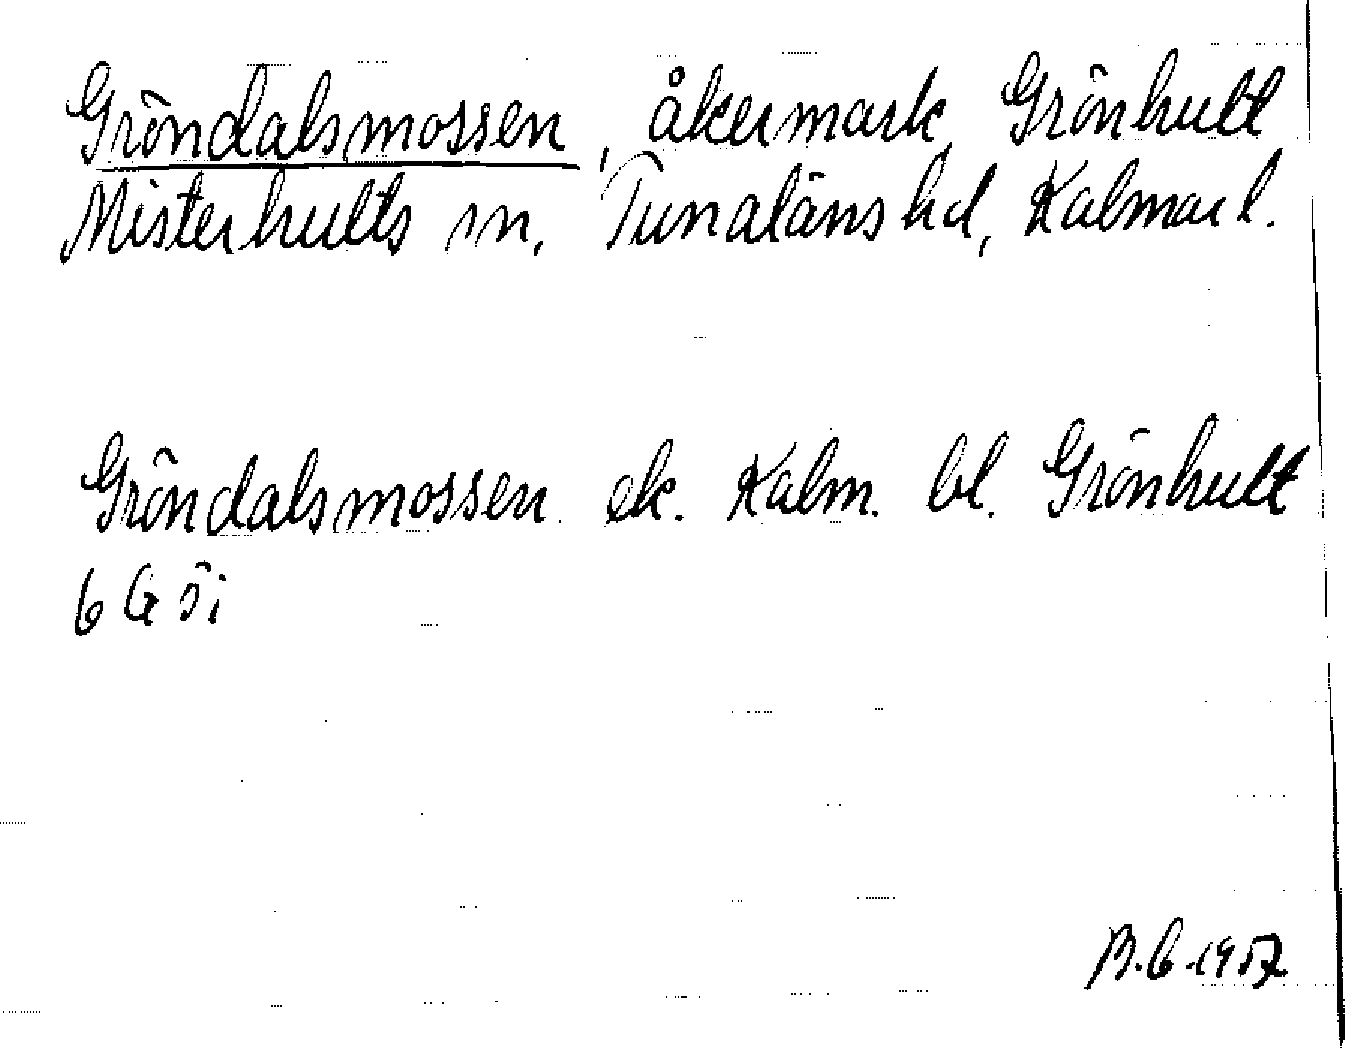 Gröndalsmossen, åkermark, Grönhult
Misterhults sn, Tunaläns hd, Kalmar l.
Gröndalsmossen ek. Kalm. bl. Grönhult
6 G öi
B.G. 1957